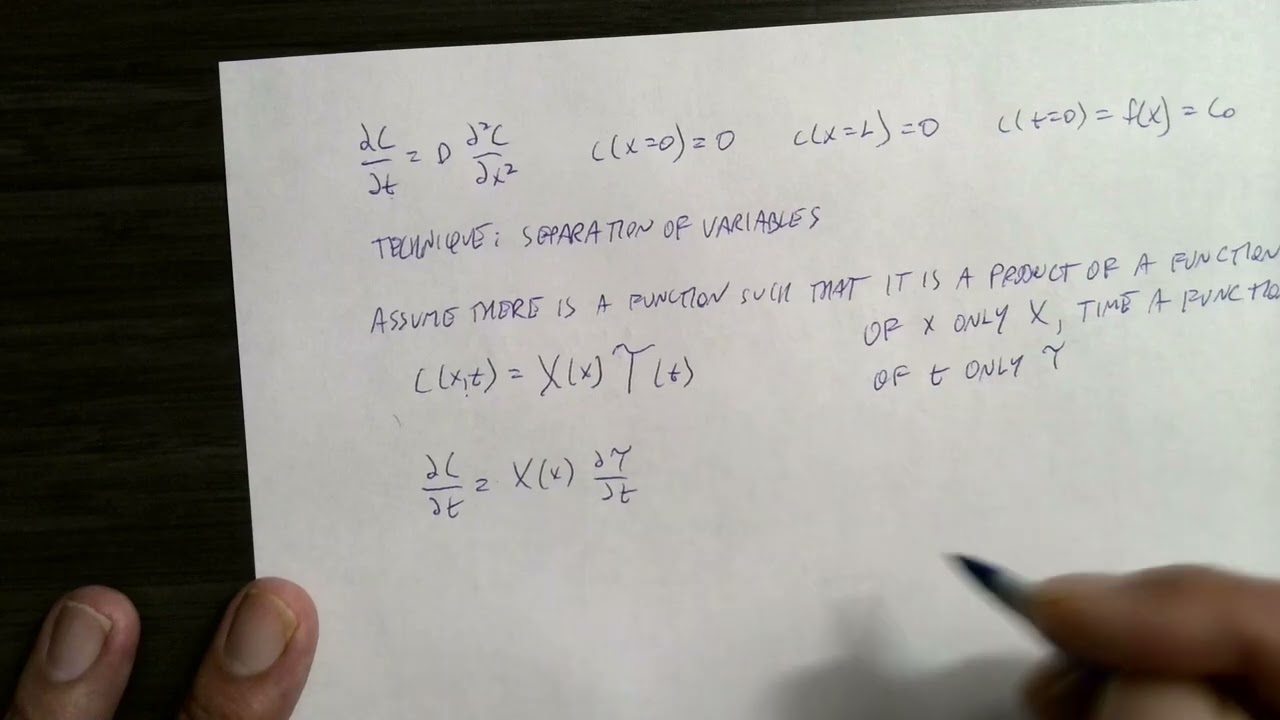 ∂C/∂t = D ∂²C/∂x² C(x=0)=0 C(x=L)=0 C(t=0)=f(x)=C₀
TECHNIQUE: SEPARATION OF VARIABLES
ASSUME THERE IS A FUNCTION SUCH THAT IT IS A PRODUCT OF A FUNCTION
OF x ONLY X, TIME A FUNCTIO
OF t ONLY T
C(x,t) = X(x) T(t)
∂C/∂t = X(x) ∂T/∂t